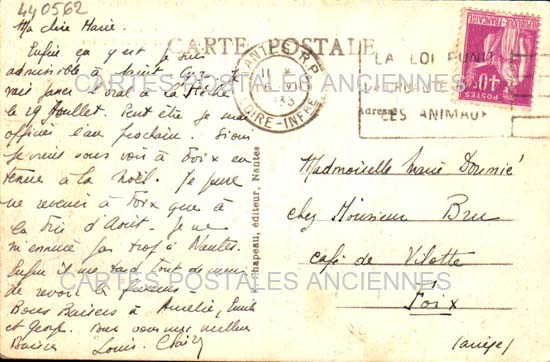 440562
Ma chère Marie.
CARTE POSTALE
Enfin ça y est je suis
admissible à Saint Cyr. Je
vais passer l'oral à la
le 29 Juillet. Peut être je serai
officier l'an prochain. Sinon
je vous à Foix en
tenue à la Noël. Je pense
ne revenir à Foix que à
la fin d'Août. Je ne
m'ennuie pas trop à Nantes.
Enfin il me tard tout de même
de revoir
Bons Baisers à Amélie, Emile
et Georges. Pour vous mes meilleurs
Baisers Louis
NANTES R.P.
LOIRE-INFRE
LA LOI PUNIT
LES ANIMAUX
Adresse
POSTES
40c
Chapeau, éditeur, Nantes
Mademoiselle Marie
chez Monsieur Bru
café de Vilotte
Foix
(ariège)
CARTES POSTALES ANCIENNES
CARTES POSTALES ANCIENNES